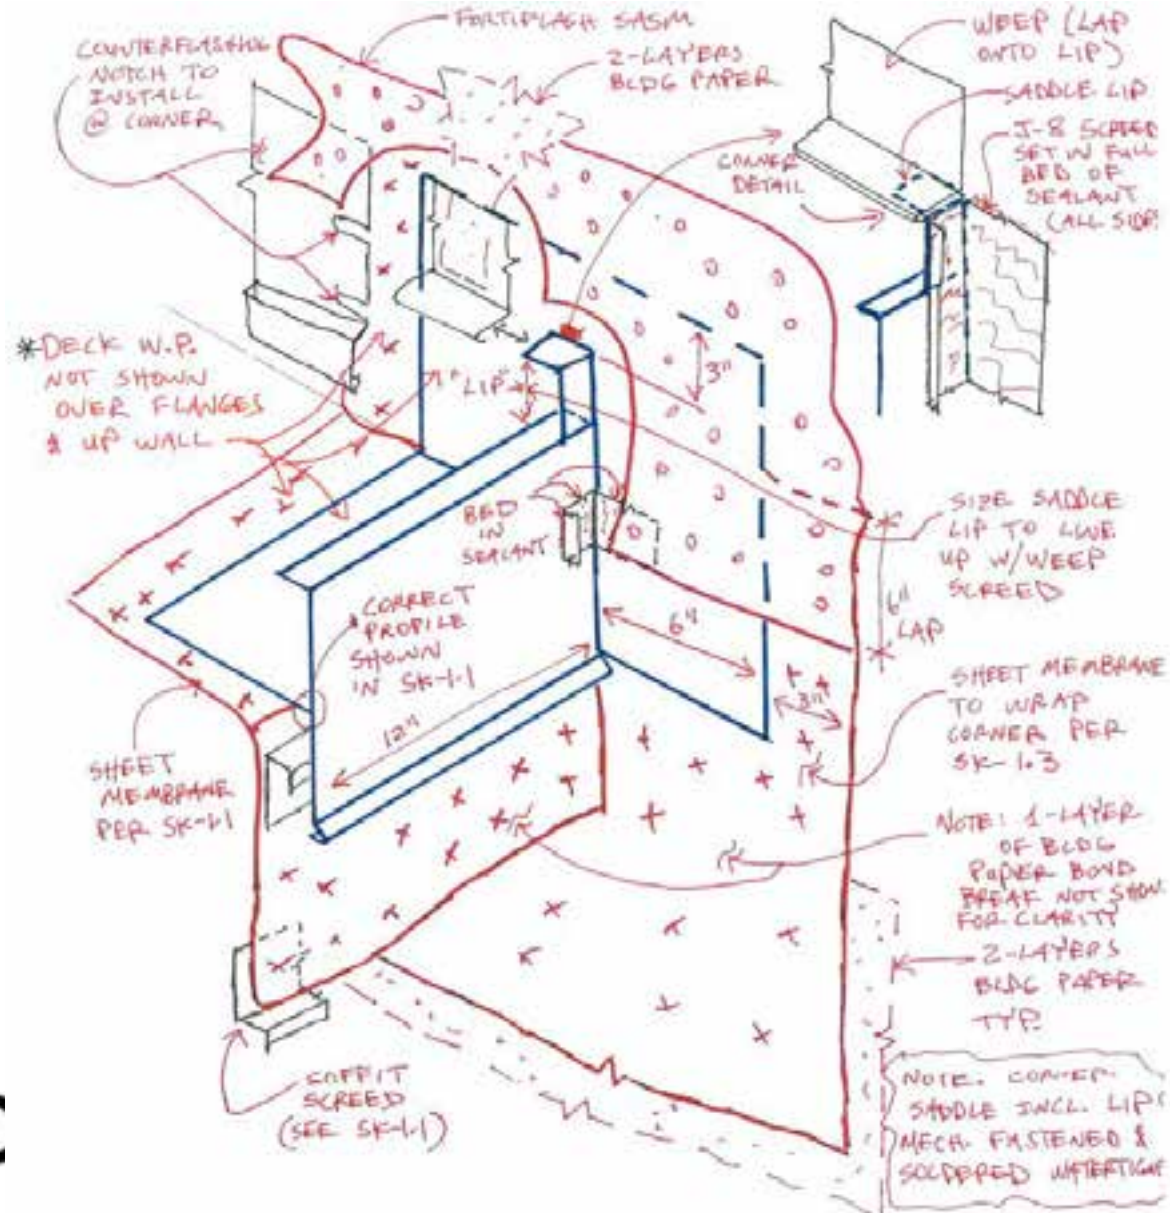 FORTIFLASH SASM
COUNTERFLASHING
NOTCH TO
INSTALL
@ CORNER
2-LAYERS
BLDG PAPER
WEEP (LAP
ONTO LIP)
SADDLE LIP
J-8 SCREED
SET IN FULL
BED OF
SEALANT
(ALL SIDES
CORNER
DETAIL
*DECK W.P.
NOT SHOWN
OVER FLANGES
& UP WALL
"LIP"
3"
BED
IN
SEALANT
SIZE SADDLE
LIP TO LINE
UP W/WEEP
SCREED
6"
LAP
* CORRECT
PROFILE
SHOWN
IN SK-1.1
6"
12"
3"
SHEET MEMBRANE
TO WRAP
CORNER PER
SK-1.3
SHEET
MEMBRANE
PER SK-1.1
NOTE: 1-LAYER
OF BLDG
PAPER BOND
BREAK NOT SHOWN
FOR CLARITY
2-LAYERS
BLDG PAPER
TYP.
SOFFIT
SCREED
(SEE SK-1.1)
NOTE. CORNER
SADDLE INCL. LIP
MECH. FASTENED &
SOLDERED WATERTIGHT